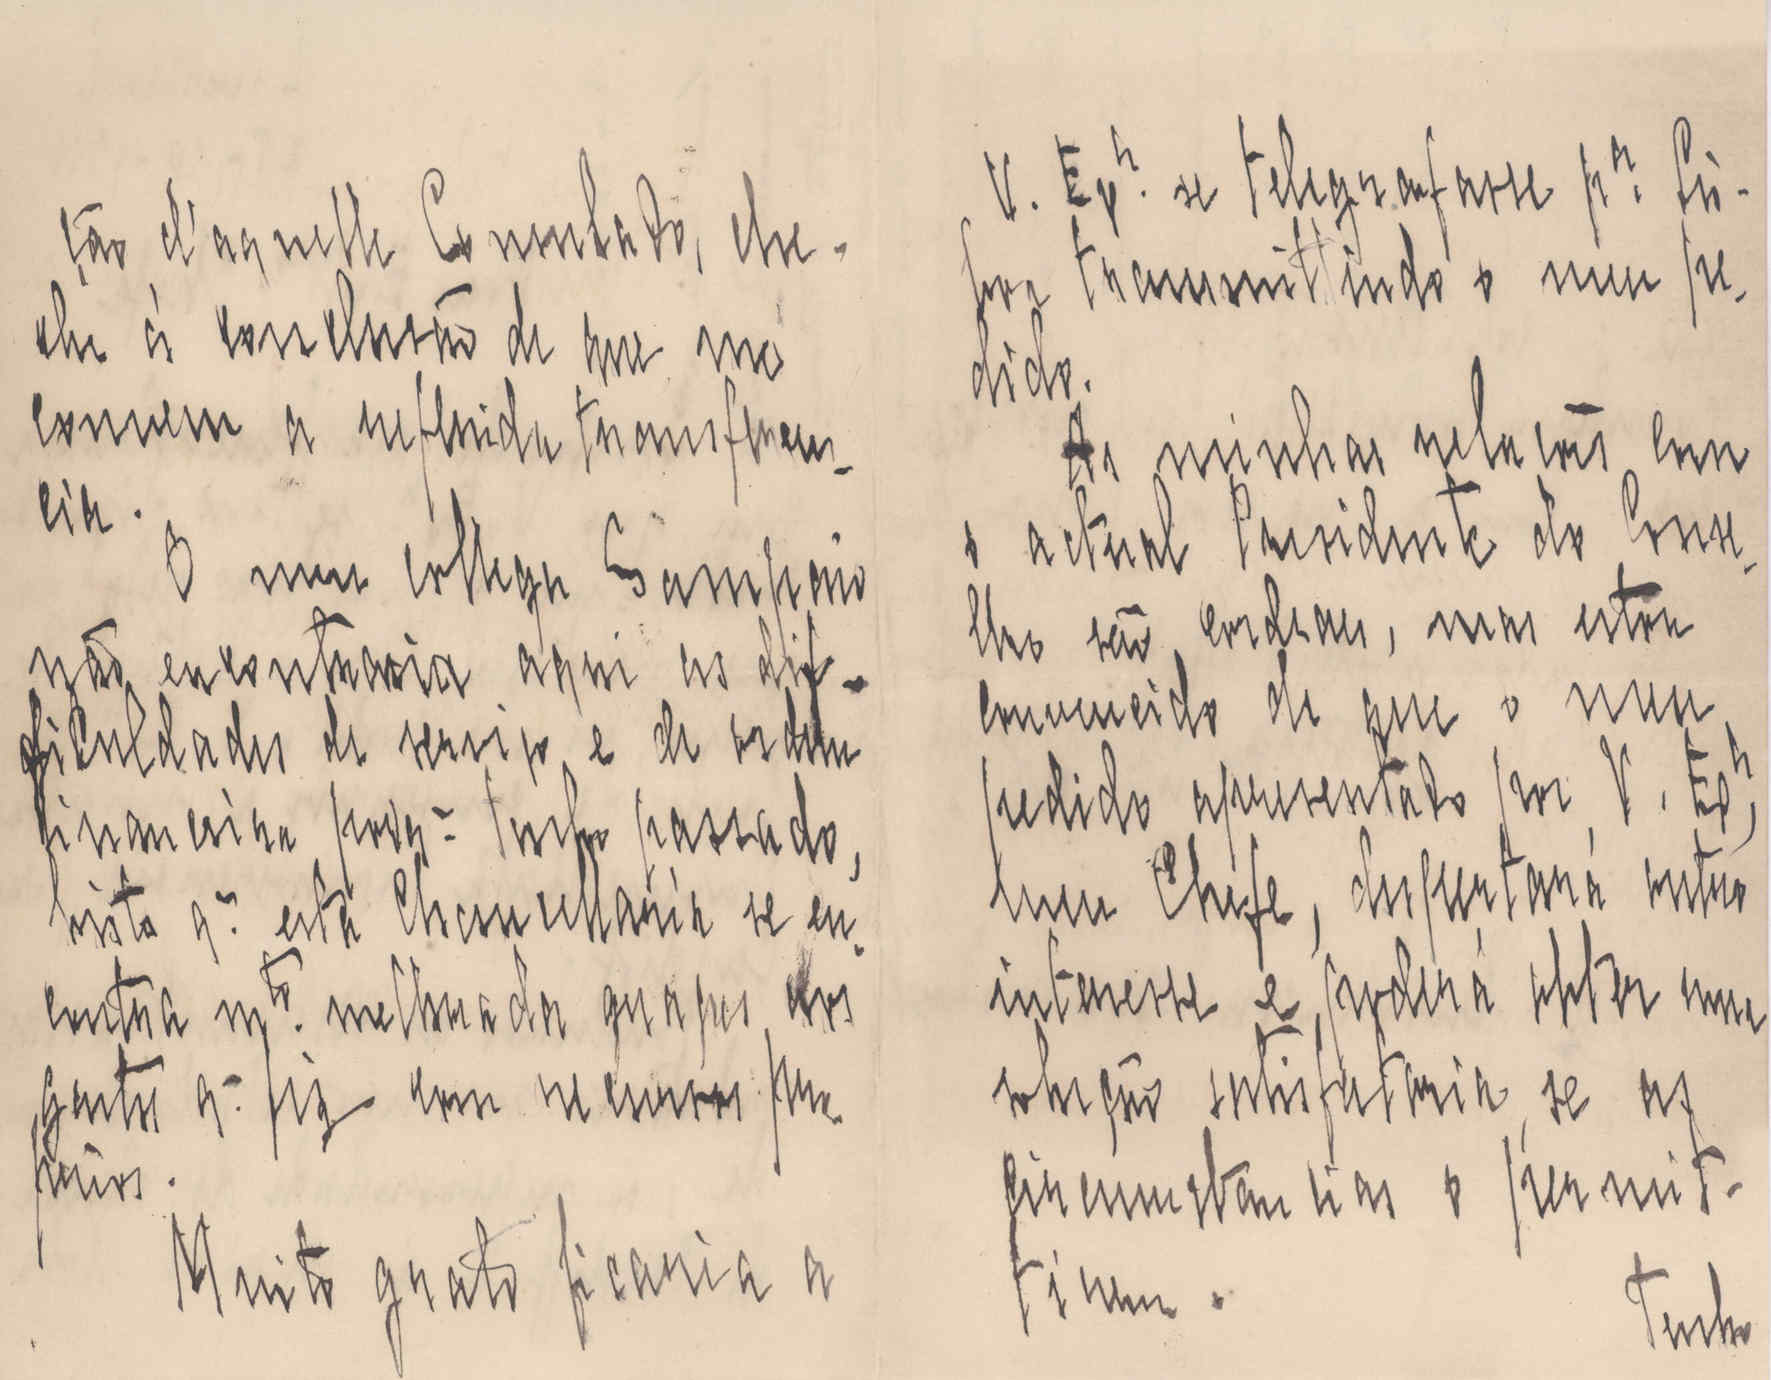 ção d'aquelle Consulado, che-
che á conclusão de que me
convem a referida transferen-
cia.
O meu collega Sampaio
não encontraria aqui as dif-
ficuldades de serviço e de ordem
financeira porq~ tenho passado,
visto q~ esta Chancellaria se en-
contra m.to melhorada graças aos
gastos q~ fiz com recursos pro-
prios.
Muito grato ficaria a
V. Ex.a se telegrafasse p.a Lis-
boa transmittindo o meu pe-
dido.
As minhas relações com
o actual Presidente do Conse-
lho são cordeaes, mas estou
convencido de que o meu
pedido apresentado por V. Ex.a,
meu Chefe, despertará outro
interesse e poderá obter uma
solução satisfatoria, se as
circumstancias o permit-
tirem.
Tenho